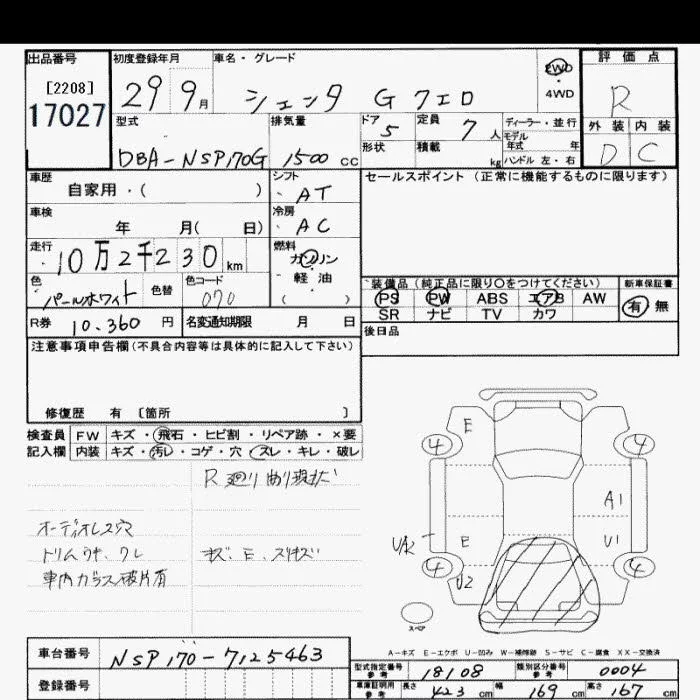 出品番号
[2208]
17027
初度登録年月
29 9月
車名・グレード
シエンタ G 7エロ
2WD
4WD
評価点
R
外装 内装
D C
型式
DBA-NSP170G
排気量
1500 CC
ドア
5
形状
定員
7人
積載 kg
ディーラー・並行
モデル年式 年
ハンドル 左・右
車歴
自家用・( )
シフト
AT
セールスポイント（正常に機能するものに限ります）
車検
年 月( 日)
冷房
AC
走行
10万2千230km
燃料
ガソリン
・
軽油
( )
色
パールホワイト
色替
色コード
070
装備品（純正品に限り○をつけてください）
PS PW ABS エアB AW
SR ナビ TV カワ
新車保証書
有 無
R券 10.360円
名変通知期限 月 日
後日品
注意事項申告欄(不具合内容等は具体的に記入して下さい)
修復歴 有〔箇所 〕
検査員記入欄
FW キズ・飛石・ヒビ割・リペア跡・×要
内装 キズ・汚レ・コゲ・穴・スレ・キレ・破レ
R廻り
オーディオレス穴
トリムウキ、ワレ
キズ、E、スリキズ
車内ガラス破片有
E
4 4
A1
UA2 E U1
4 4
U2
スペア
A-キズ E-エクボ U-凹み W-補修跡 S-サビ C-腐食 XX-交換済
車台番号
NSP170-7125463
型式指定番号 参考
18108
類別区分番号 参考
0004
登録番号
車庫証明用 参考
長さ 423 cm
幅 169 cm
高さ 167 cm